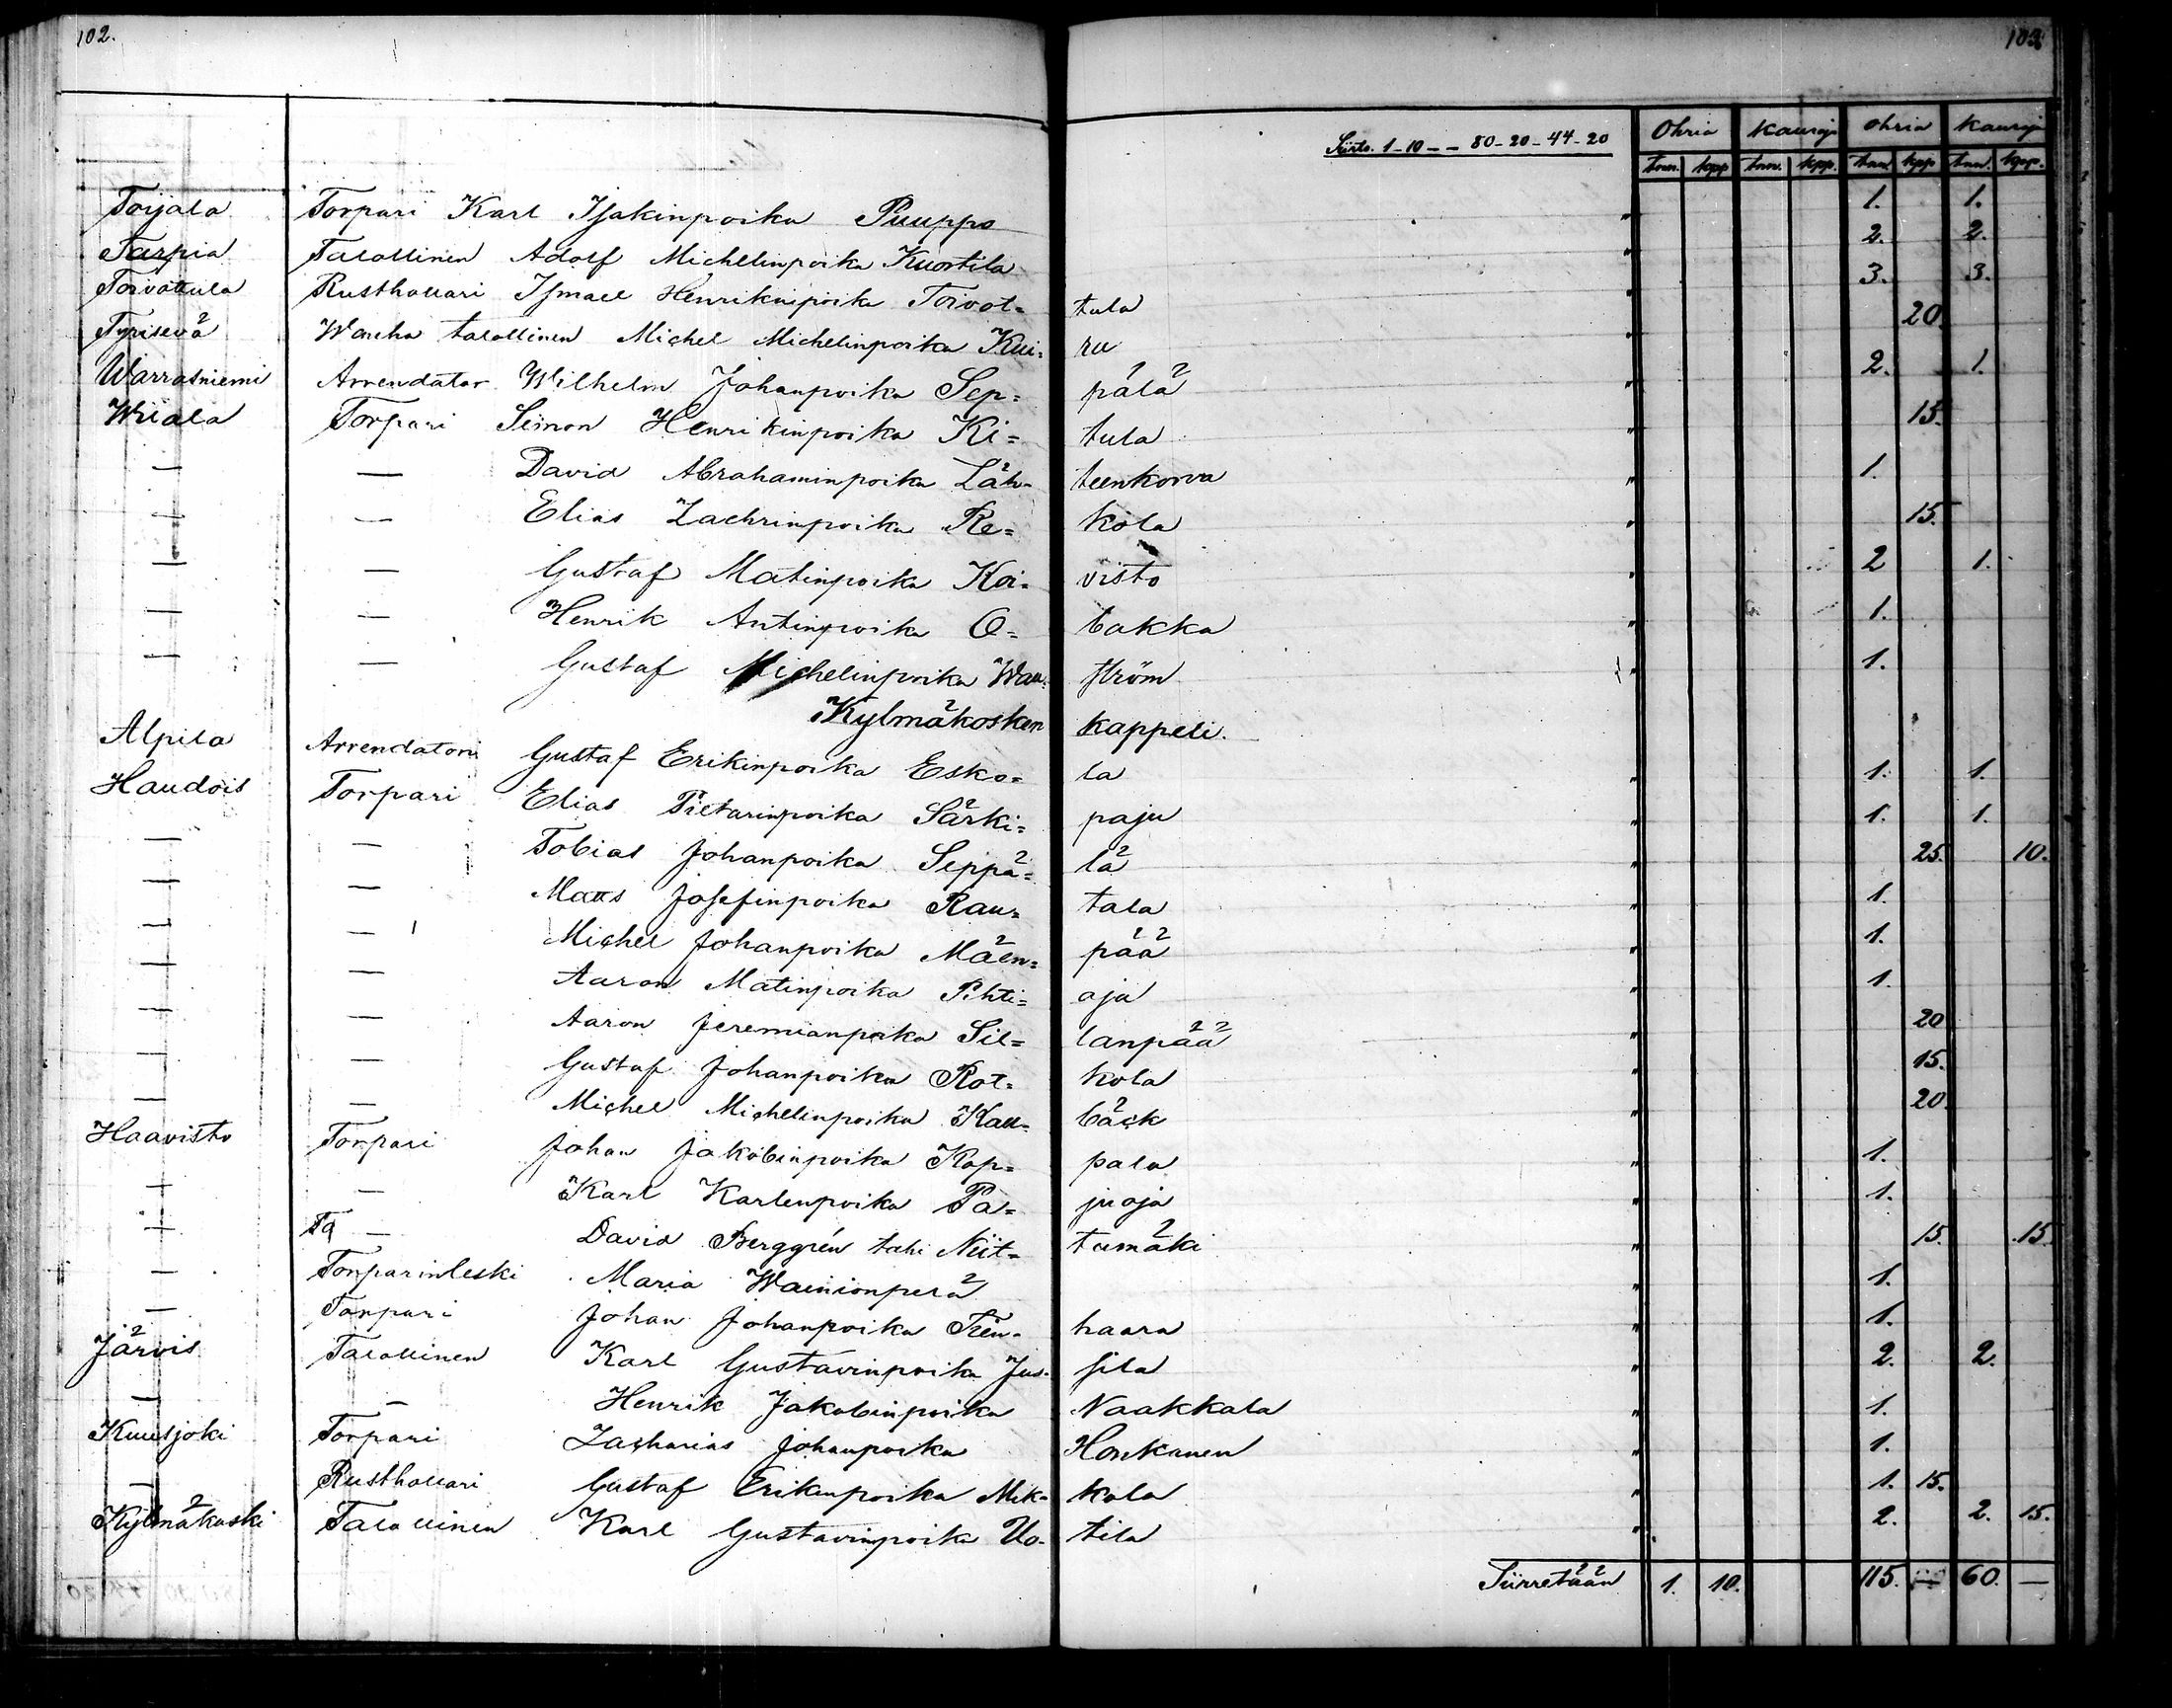 102.
103
Siirto. 1-10 - - 80-20-44-20
Ohria Kauroja ohria Kauroja
tnn. kpp tnn. kpp. tnn. kpp tnn. kpp.
Toijala Torpari Karl Isakinpoika Puuppo " 1. 1.
Tarpia Talollinen Adolf Michelinpoika Kuortila " 2. 2.
Toivottula Rusthollari Ismael Henrikinpoika Toivot= tula " 3. 3.
Typisevä Wanha talollinen Michel Michelinpoika Kui= ru " 20.
Warrasniemi Arrendator Wilhelm Johanpoika Sep= pälä " 2. 1.
Wiiala Torpari Seimon Henrikinpoika Ki= tula " 15.
— — David Abrahaminpoika Läh= teenkorva " 1.
— — Elias Zachrinpoika Re= kola " 15.
— — Gustaf Matinpoika Koi= visto " 2 1.
— — Henrik Antinpoika O= takka " 1.
— — Gustaf Michelinpoika Wau= ström " 1.
Kylmäkosken kappeli.
Alpila Arrendatori Gustaf Erikinpoika Esko= la " 1. 1.
Haudois Torpari Elias Pietarinpoika Särki= paju " 1. 1.
— — Tobias Johanpoika Seppä= lä " 25. 10.
— — Matts Josefinpoika Rau= tala " 1.
— — Michel Johanpoika Mäen= pää " 1.
— — Aaron Matinpoika Pihti= oja " 1.
— — Aaron Jeremianpoika Sil= lanpää " 20
— — Gustaf Johanpoika Rot= kola " 15.
— — Michel Michelinpoika Kau= bäck " 20.
Haavisto Torpari Johan Jakobinpoika Kop= pala " 1.
— — Karl Karlenpoika Pa= juoja " 1.
— — David Berggrén tahi Niit= tumäki " 15. 15.
— Torparinleski Maria Wainionperä " 1.
— Torpari Johan Johanpoika Tien= haara " 1.
Järvis Talollinen Karl Gustavinpoika Jus= sila " 2. 2.
— — Henrik Jakobinpoika Naakkala " 1.
Kuusjoki Torpari Zacharias Johanpoika Honkanen " 1.
— Rusthollari Gustaf Erikinpoika Mik= kola " 1. 15.
Kylmäkoski Talollinen Karl Gustavinpoika Uo= tila " 2. 2. 15.
Siirretään 1. 10. 115. — 60. —